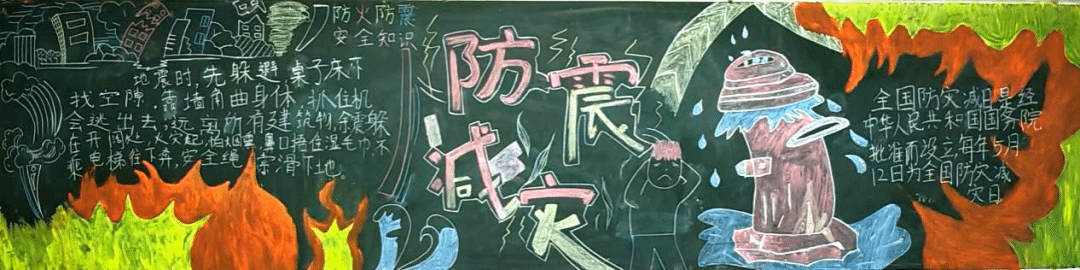 防火防震
安全知识
地震时,先躲避,桌子床下
找空隙,靠墙角曲身体,抓住机
会逃出去,远离所有建筑物,余震躲
在开阔处,火灾起
鼻口捂住湿毛巾不
乘电梯往下奔,安全绳索滑下地。
防震
减灾
全国防灾减日是经
中华人民共和国国务院
批准而设立,每年5月
12日为全国防灾减
灾日